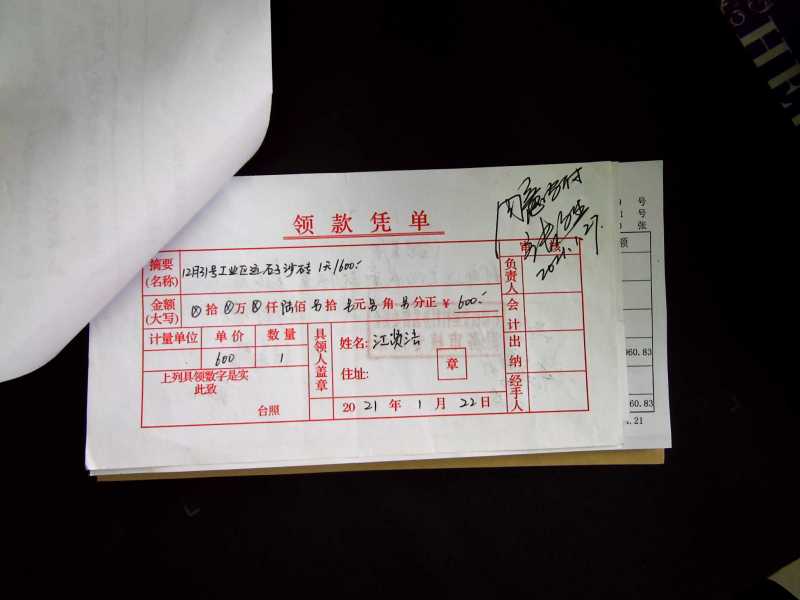 HE
领款凭单
同意支付
2021.1.27.
审核
摘要(名称) 12月31号工业区运石子沙砖 1天/600.-
金额(大写) ⊗拾⊗万⊗仟陆佰另拾另元另角另分正 ¥ 600.-
计量单位 单价 数量
600 1
上列具领数字是实
此致
台照
具领人盖章
姓名: 江
住址:
章
2021年1月22日
负责人
会计
出纳
经手人
号
号
张
额
960.83
960.83
.21